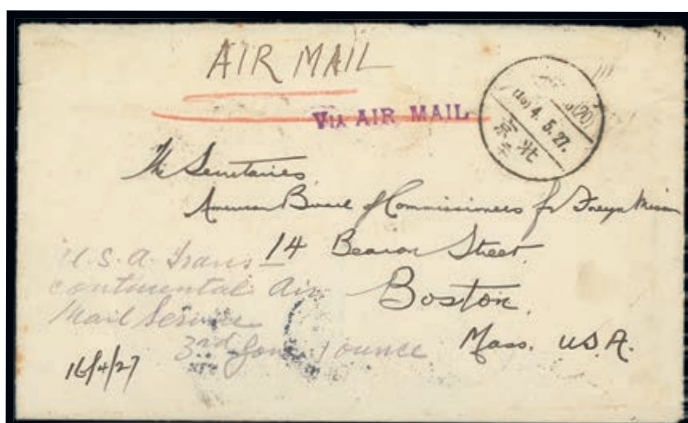 AIR MAIL
VIA AIR MAIL
4.5.27.
北京
The Secretaries,
American Board of Commissioners for Foreign Mission
14 Beacon Street.
Boston.
Mass. U.S.A.
U.S.A. Trans-
continental Air
Mail Service
3rd Zone 1 ounce
16/4/27